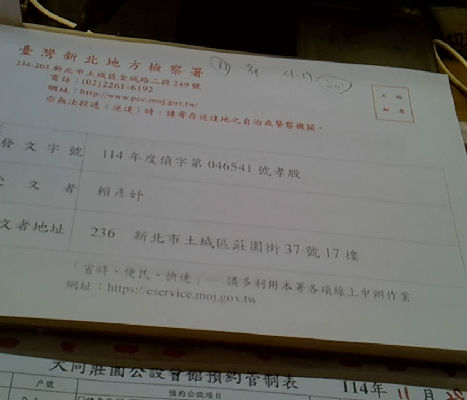 臺灣新北地方檢察署
236-203 新北市土城區金城路二段249號
電話：(02)2261-6192
網址：http://www.pcc.moj.gov.tw/
※無法投遞（送達）時，請寄存送達地之自治或警察機關。
發文字號 114年度偵字第046541號孝股
受文者 賴彥妤
受文者地址 236 新北市土城區莊園街37號17樓
「省時、便民、快速」 請多利用本署各項線上申辦作業
網址：https://eservice.moj.gov.tw
大同莊園公設會館預約管制表 114年 11月
戶號 預約公設項目